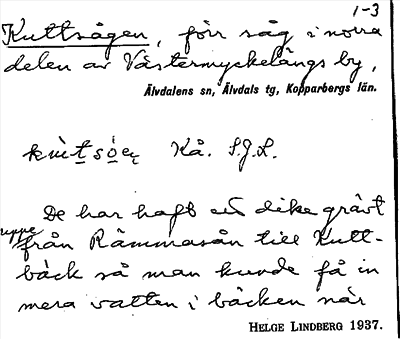 1-3
Kuttsågen, förr såg i norra
delen av Västermyckelängs by,
Älvdalens sn, Älvdals tg, Kopparbergs län.
Kå. S.J.L.
De har haft ett dike grävt
uppe från Rämmasån till Kutt-
bäck så man kunde få in
mera vatten i bäcken när
HELGE LINDBERG 1937.